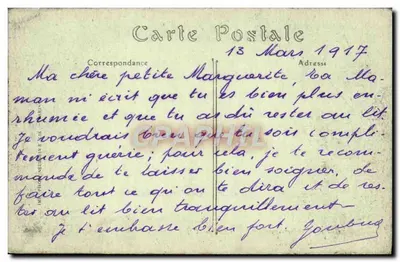 Carte Postale
Correspondance Adresse
13 Mars 1917
Ma chère petite Marguerite, ta Ma-
man m'écrit que tu es bien plus en-
rhumée et que tu as dû rester au lit.
Je voudrais bien que tu sois complè-
tement guérie; pour cela, je te recom-
mande de te laisser bien soigner, de
faire tout ce qu'on te dira et de res-
ter au lit bien tranquillement —
Je t'embrasse bien fort.